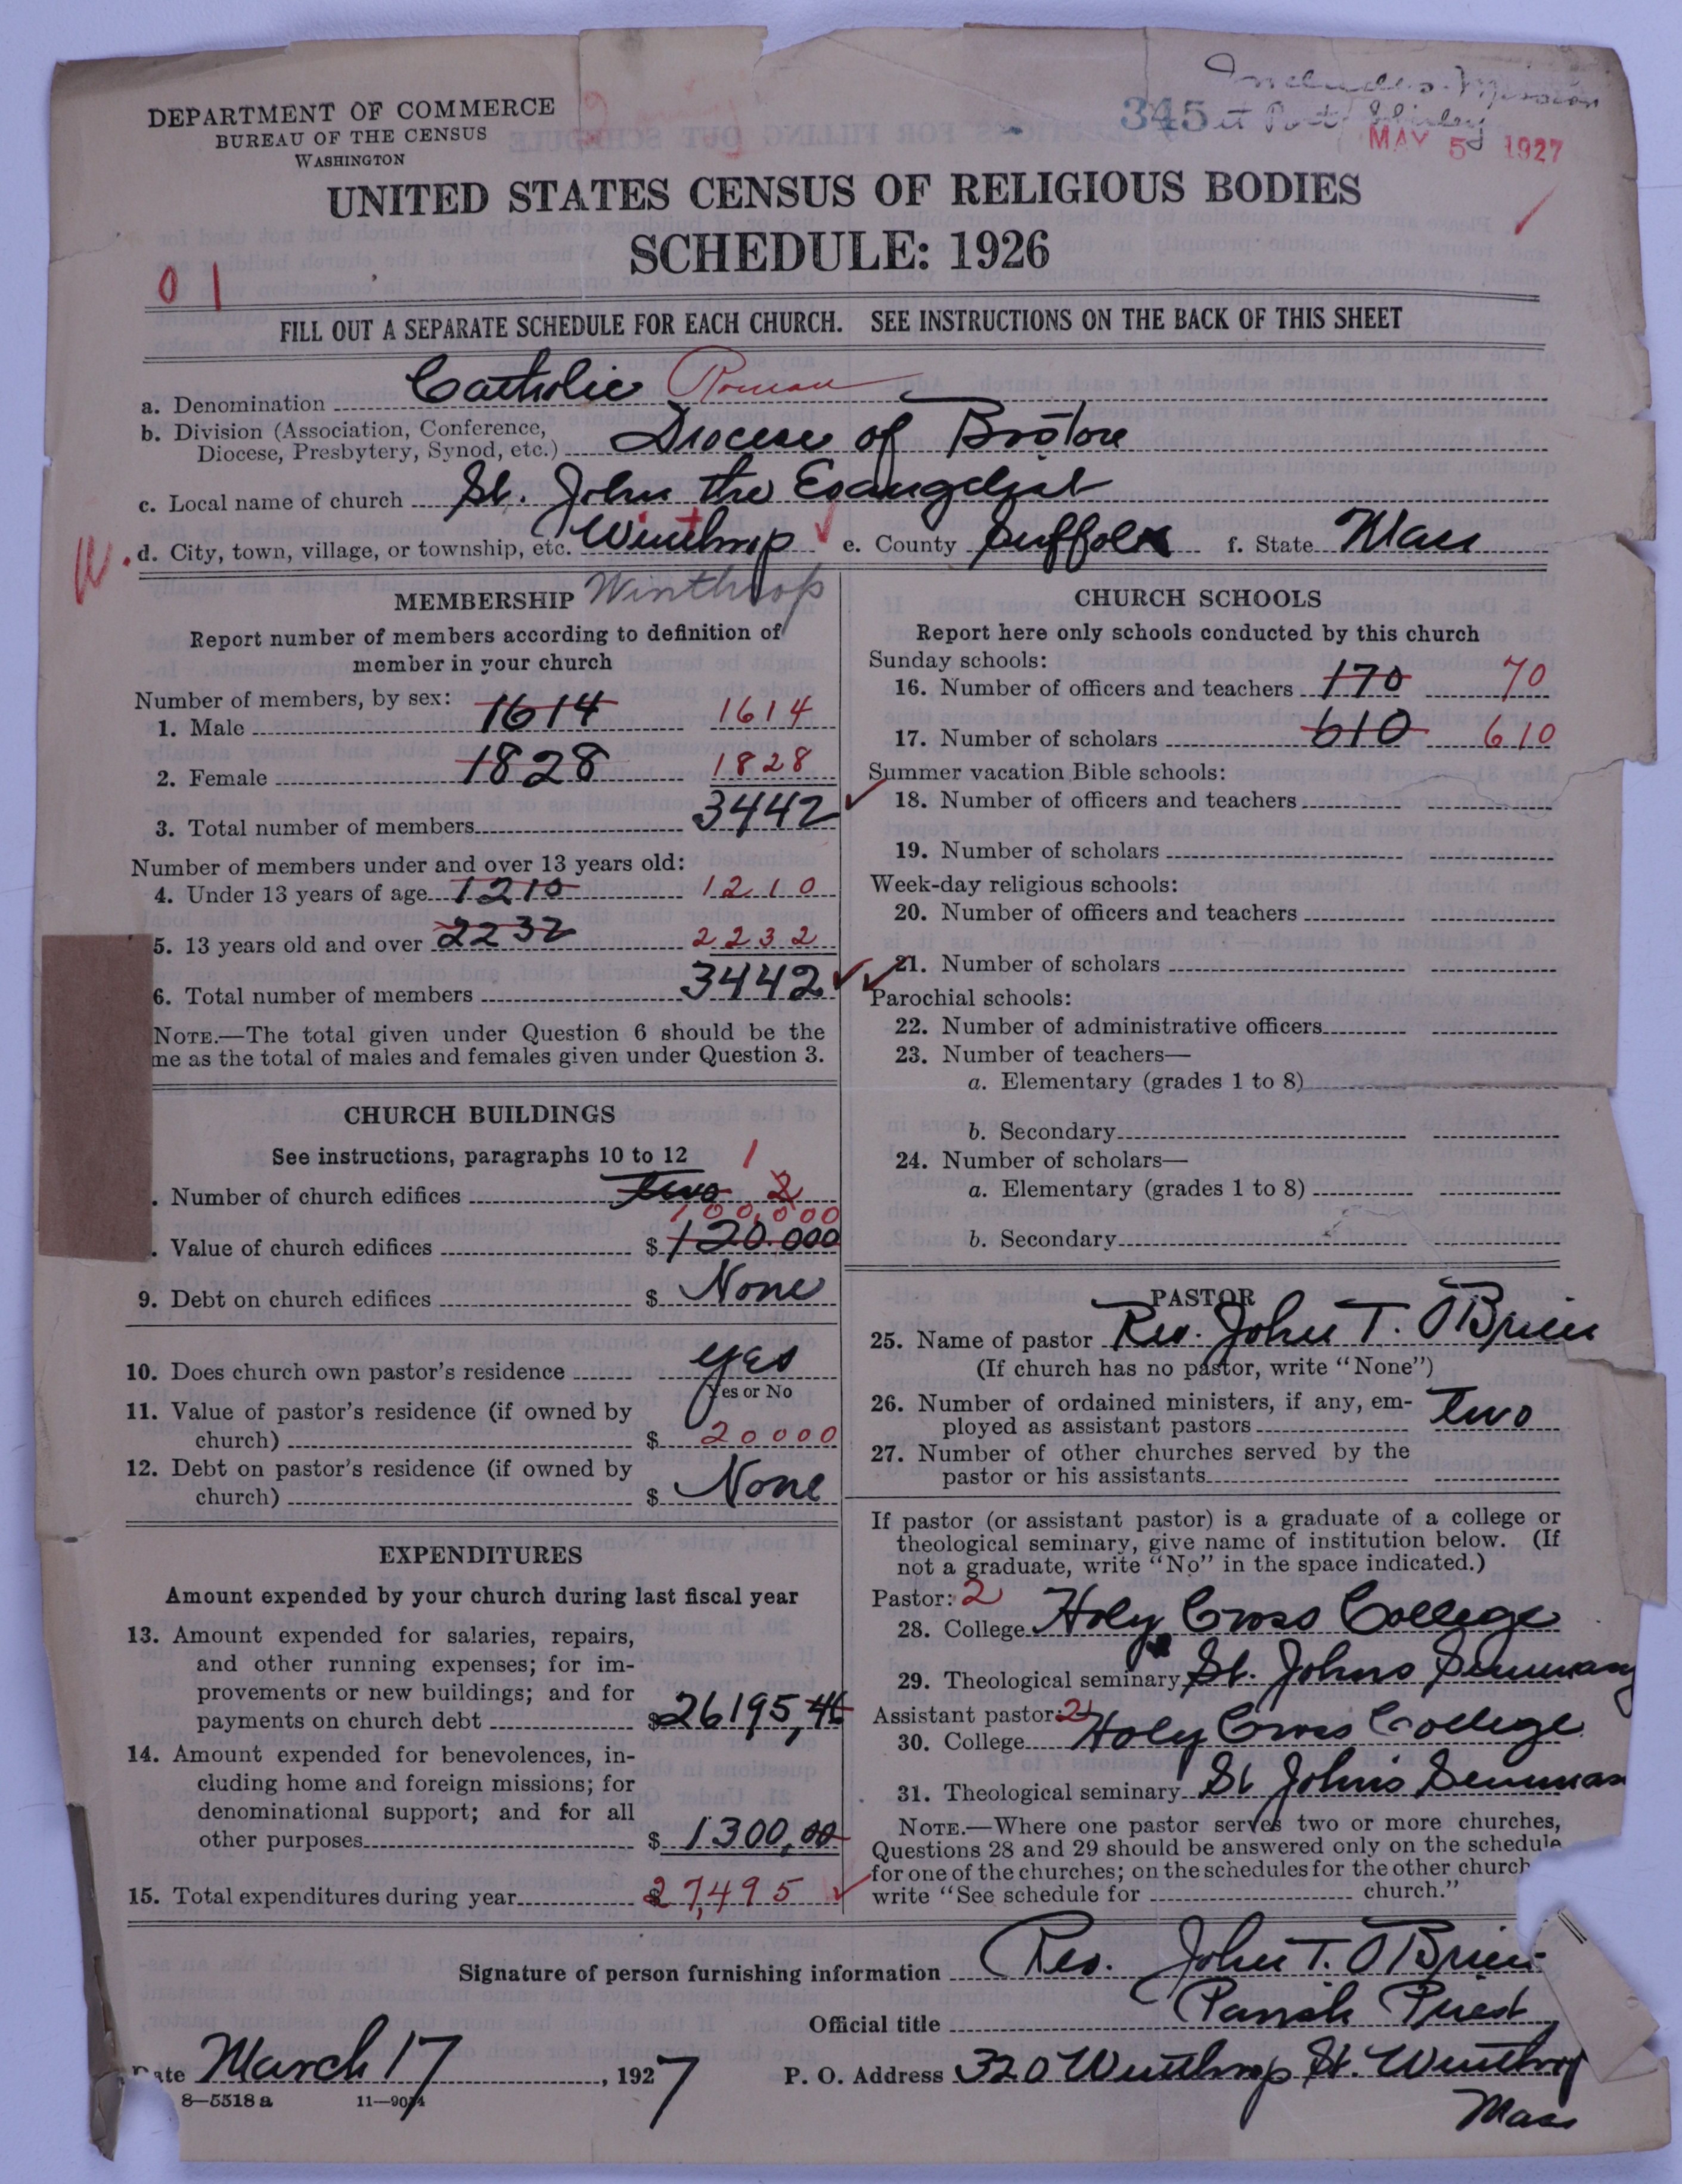 Includes Mission
345 at Point Shirley
MAY 5 1927
DEPARTMENT OF COMMERCE
BUREAU OF THE CENSUS
WASHINGTON
UNITED STATES CENSUS OF RELIGIOUS BODIES
SCHEDULE: 1926
01
FILL OUT A SEPARATE SCHEDULE FOR EACH CHURCH. SEE INSTRUCTIONS ON THE BACK OF THIS SHEET
a. Denomination Catholic Roman
b. Division (Association, Conference,
Diocese, Presbytery, Synod, etc.) Diocese of Boston
c. Local name of church St. John the Evangelist
d. City, town, village, or township, etc. Winthrop e. County Suffolk f. State Mass
MEMBERSHIP Winthrop
Report number of members according to definition of
member in your church
Number of members, by sex:
1. Male 1614 1614
2. Female 1828 1828
3. Total number of members 3442
Number of members under and over 13 years old:
4. Under 13 years of age 1210 1210
5. 13 years old and over 2232 2232
6. Total number of members 3442
NOTE.—The total given under Question 6 should be the
me as the total of males and females given under Question 3.
CHURCH BUILDINGS
See instructions, paragraphs 10 to 12
1
. Number of church edifices two 2
100,000
. Value of church edifices $ 120.000
9. Debt on church edifices $ None
10. Does church own pastor's residence yes
Yes or No
11. Value of pastor's residence (if owned by
church) $ 20000
12. Debt on pastor's residence (if owned by
church) $ None
EXPENDITURES
Amount expended by your church during last fiscal year
13. Amount expended for salaries, repairs,
and other running expenses; for im-
provements or new buildings; and for
payments on church debt $ 26195,46
14. Amount expended for benevolences, in-
cluding home and foreign missions; for
denominational support; and for all
other purposes $ 1300,00
15. Total expenditures during year $ 27,495
CHURCH SCHOOLS
Report here only schools conducted by this church
Sunday schools:
16. Number of officers and teachers 170 70
17. Number of scholars 610 610
Summer vacation Bible schools:
18. Number of officers and teachers
19. Number of scholars
Week-day religious schools:
20. Number of officers and teachers
21. Number of scholars
Parochial schools:
22. Number of administrative officers
23. Number of teachers—
a. Elementary (grades 1 to 8)
b. Secondary
24. Number of scholars—
a. Elementary (grades 1 to 8)
b. Secondary
PASTOR
25. Name of pastor Rev. John T. O'Brien
(If church has no pastor, write "None")
26. Number of ordained ministers, if any, em-
ployed as assistant pastors two
27. Number of other churches served by the
pastor or his assistants
If pastor (or assistant pastor) is a graduate of a college or
theological seminary, give name of institution below. (If
not a graduate, write "No" in the space indicated.)
Pastor: 2
28. College Holy Cross College
29. Theological seminary St. Johns Seminary
Assistant pastor: 2
30. College Holy Cross College
31. Theological seminary St John's Seminar
NOTE.—Where one pastor serves two or more churches,
Questions 28 and 29 should be answered only on the schedule
for one of the churches; on the schedules for the other church
write "See schedule for church."
Signature of person furnishing information Rev. John T. O'Brien
Official title Parish Priest
Date March 17, 1927 P. O. Address 320 Winthrop St. Winthrop
Mass
8—5518 a 11—9034